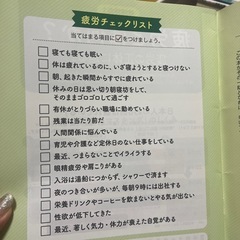 疲労チェックリスト
当てはまる項目に☑をつけましょう。
□ 寝ても寝ても眠い
□ 体は疲れているのに、いざ寝ようとすると寝つけない
□ 朝、起きた瞬間からすでに疲れている
□ 休みの日は思い切り朝寝坊をして、
そのままゴロゴロして過ごす
□ 有休がとりづらい職場に勤めている
□ 残業は当たり前だ
□ 人間関係に悩んでいる
□ 育児や介護など定休日のない仕事をしている
□ 最近、つまらないことでイライラする
□ 眼精疲労や肩こりがある
□ 入浴は湯船につからず、シャワーで済ます
□ 夜のつき合いが多いが、毎朝9時には出社する
□ 栄養ドリンクやコーヒーを飲まないとやる気が出ない
□ 性欲が低下してきた
□ 最近、著しく気力・体力が衰えた自覚がある